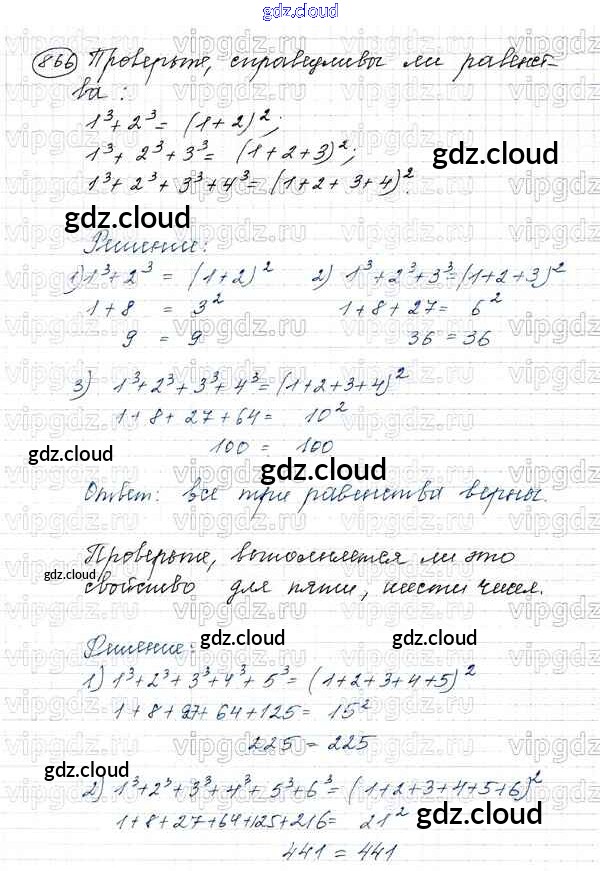 gdz.cloud
866 Проверьте, справедливы ли равенст-
ва:
1³ + 2³ = (1+2)²;
1³ + 2³ + 3³ = (1+2+3)²;
gdz.cloud
1³ + 2³ + 3³ + 4³ = (1+2+3+4)².
gdz.cloud
Решение:
1) 1³ + 2³ = (1+2)² 2) 1³ + 2³ + 3³ = (1+2+3)²
1+8 = 3² 1+8+27 = 6²
9 = 9 36 = 36
3) 1³ + 2³ + 3³ + 4³ = (1+2+3+4)²
1+8+27+64 = 10²
100 = 100
gdz.cloud gdz.cloud
Ответ: все три равенства верны.
Проверьте, выполняется ли это
gdz.cloud
свойство для пяти, шести чисел.
Решение:
gdz.cloud gdz.cloud
1) 1³ + 2³ + 3³ + 4³ + 5³ = (1+2+3+4+5)²
1+8+27+64+125 = 15²
225 = 225
gdz.cloud
2) 1³ + 2³ + 3³ + 4³ + 5³ + 6³ = (1+2+3+4+5+6)²
1+8+27+64+125+216 = 21²
gdz.cloud
441 = 441
vipgdz.ru